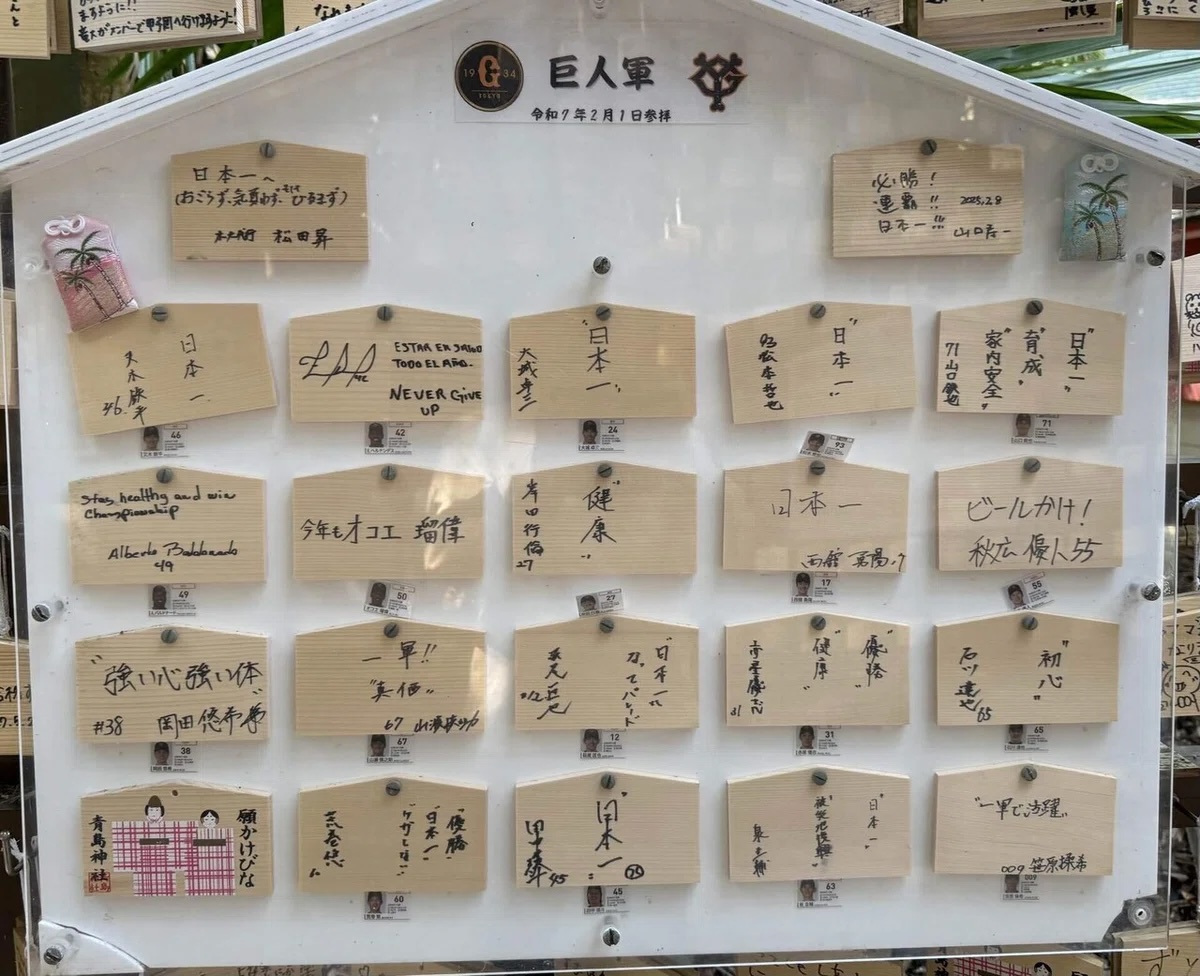 巨人軍
1934
G
令和7年2月1日参拝
日本一へ
(おごらず、気負わず、そしてひるまず)
松田昇
必勝!
連覇!!
日本一!!!
2025.2.8
山口寿一
日本一
46.
ESTAR EN SALUD
TODO EL AÑO.
NEVER GIVE
UP
"日本一"
大城卓三
"日本一"
93 松本哲也
"日本一"
"育成"
"家内安全"
71 山口鉄也
46
42
24
93
71
Stay healthy and win
Championship
Alberto Baldonado
49
今年もオコエ 瑠偉
"健康"
岸田行倫
27
日本一
西舘 勇陽 17
ビールかけ!
秋広 優人 55
49
50
27
17
55
"強い心強い体"
#38 岡田悠希
一軍!!
"真価"
67
"日本一に
なってパレード"
12
"優勝"
"健康"
31
"初心"
石川達也
65
38
67
12
31
65
願かけびな
青島神社
"優勝"
"日本一"
"ケガしない"
荒巻悠
60
"日本一"
45
"日本一"
"被災地復興"
"一軍で活躍"
009 笹原操希
60
45
63
009